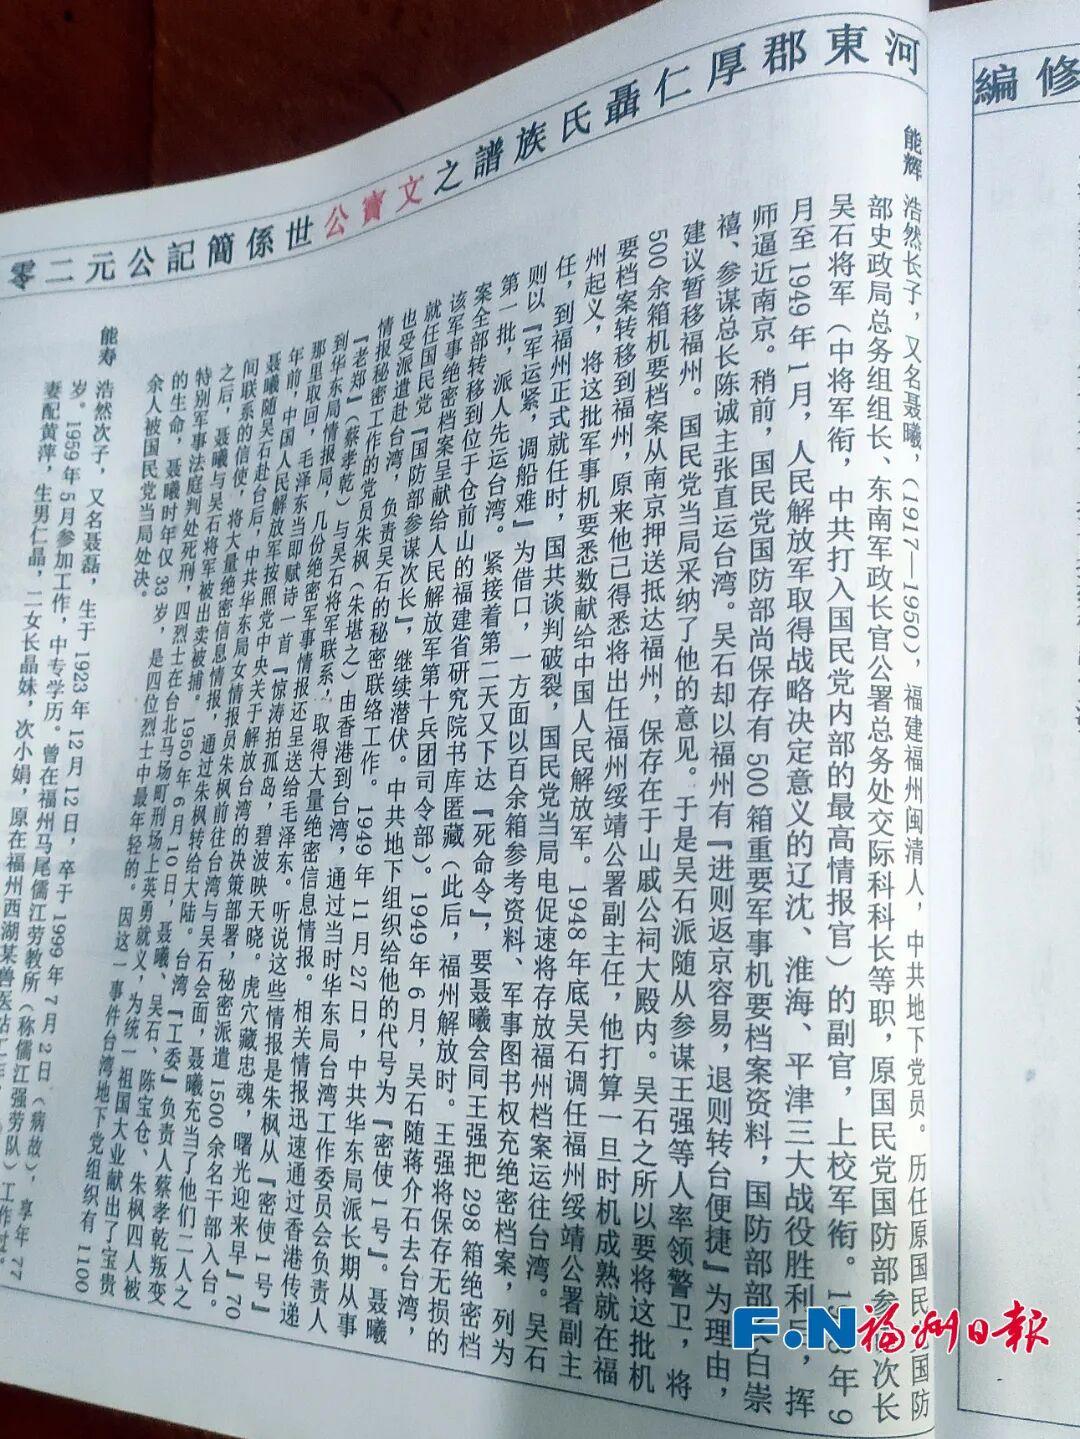 河東郡厚仁聶氏族譜之文寶公世係簡記公元二零
修編
能辉 浩然长子，又名聂曦，（1917—1950），福建福州闽清人，中共地下党员。历任原国民国防
部史政局总务组组长、东南军政长官公署总务处交际科科长等职，原国民党国防部参次长
吴石将军（中将军衔，中共打入国民党内部的最高情报官）的副官，上校军衔。年9
月至1949年1月，人民解放军取得战略决定意义的辽沈、淮海、平津三大战役胜利，挥
师逼近南京。稍前，国民党国防部尚保存有500箱重要军事机要档案资料，国防部部长白崇
禧、参谋总长陈诚主张直运台湾。吴石却以福州有『进则返京容易，退则转台便捷』为理由，
建议暂移福州。国民党当局采纳了他的意见。于是吴石派随从参谋王强等人率领警卫，将
500余箱机要档案从南京押送抵达福州，保存在于山戚公祠大殿内。吴石之所以要将这批机
要档案转移到福州，原来他已得悉将出任福州绥靖公署副主任，他打算一旦时机成熟就在福
州起义，将这批军事机要悉数献给中国人民解放军。1948年底吴石调任福州绥靖公署副主
任，到福州正式就任时，国共谈判破裂，国民党当局电促速将存放福州档案运往台湾。吴石
则以『军运紧，调船难』为借口，一方面以百余箱参考资料、军事图书权充绝密档案，列为
第一批，派人先运台湾。紧接着第二天又下达『死命令』，要聂曦会同王强把298箱绝密档
案全部转移到位于仓前山的福建省研究院书库匿藏（此后，福州解放时。王强将保存无损的
该军事绝密档案呈献给人民解放军第十兵团司令部）。1949年6月，吴石随蒋介石去台湾，
就任国民党『国防部参谋次长』，继续潜伏。中共地下组织给他的代号为『密使1号』。聂曦
也受派遣赴台湾，负责吴石的秘密联络工作。1949年11月27日，中共华东局派长期从事
情报秘密工作的党员朱枫（朱堪之）由香港到台湾，通过当时华东局台湾工作委员会负责人
『老郑』（蔡孝乾）与吴石将军联系，取得大量绝密信息情报。相关情报迅速通过香港传递
到华东局情报局，几份绝密军事情报还呈送给毛泽东。听说这些情报是朱枫从『密使1号』
那里取回，毛泽东当即赋诗一首『惊涛拍孤岛，碧波映天晓。虎穴藏忠魂，曙光迎来早』70
年前，中国人民解放军按照党中央关于解放台湾的决策部署，秘密派遣1500余名干部入台。
聂曦随吴石赴台后，中共华东局女情报员朱枫前往台湾与吴石会面，聂曦充当了他们二人之
间联系的信使，将大量绝密信息情报，通过朱枫转给大陆。台湾『工委』负责人蔡孝乾叛变
之后，聂曦与吴石将军被出卖被捕。1950年6月10日，聂曦、吴石、陈宝仓、朱枫四人被
特别军事法庭判处死刑，四烈士在台北马场町刑场上英勇就义，为统一祖国大业献出了宝贵
的生命，聂曦时年仅33岁，是四位烈士中最年轻的。因这一事件台湾地下党组织有1100
余人被国民党当局处决。
能寿 浩然次子，又名聂磊，生于1923年12月12日，卒于1999年7月2日（病故），享年77
岁。1959年5月参加工作，中专学历。曾在福州马尾儒江劳教所（称儒江强劳队）工作过。
妻配黄萍，生男仁晶，二女长晶妹，次小娟，原在福州西湖某兽医站工作
F.N福州日报